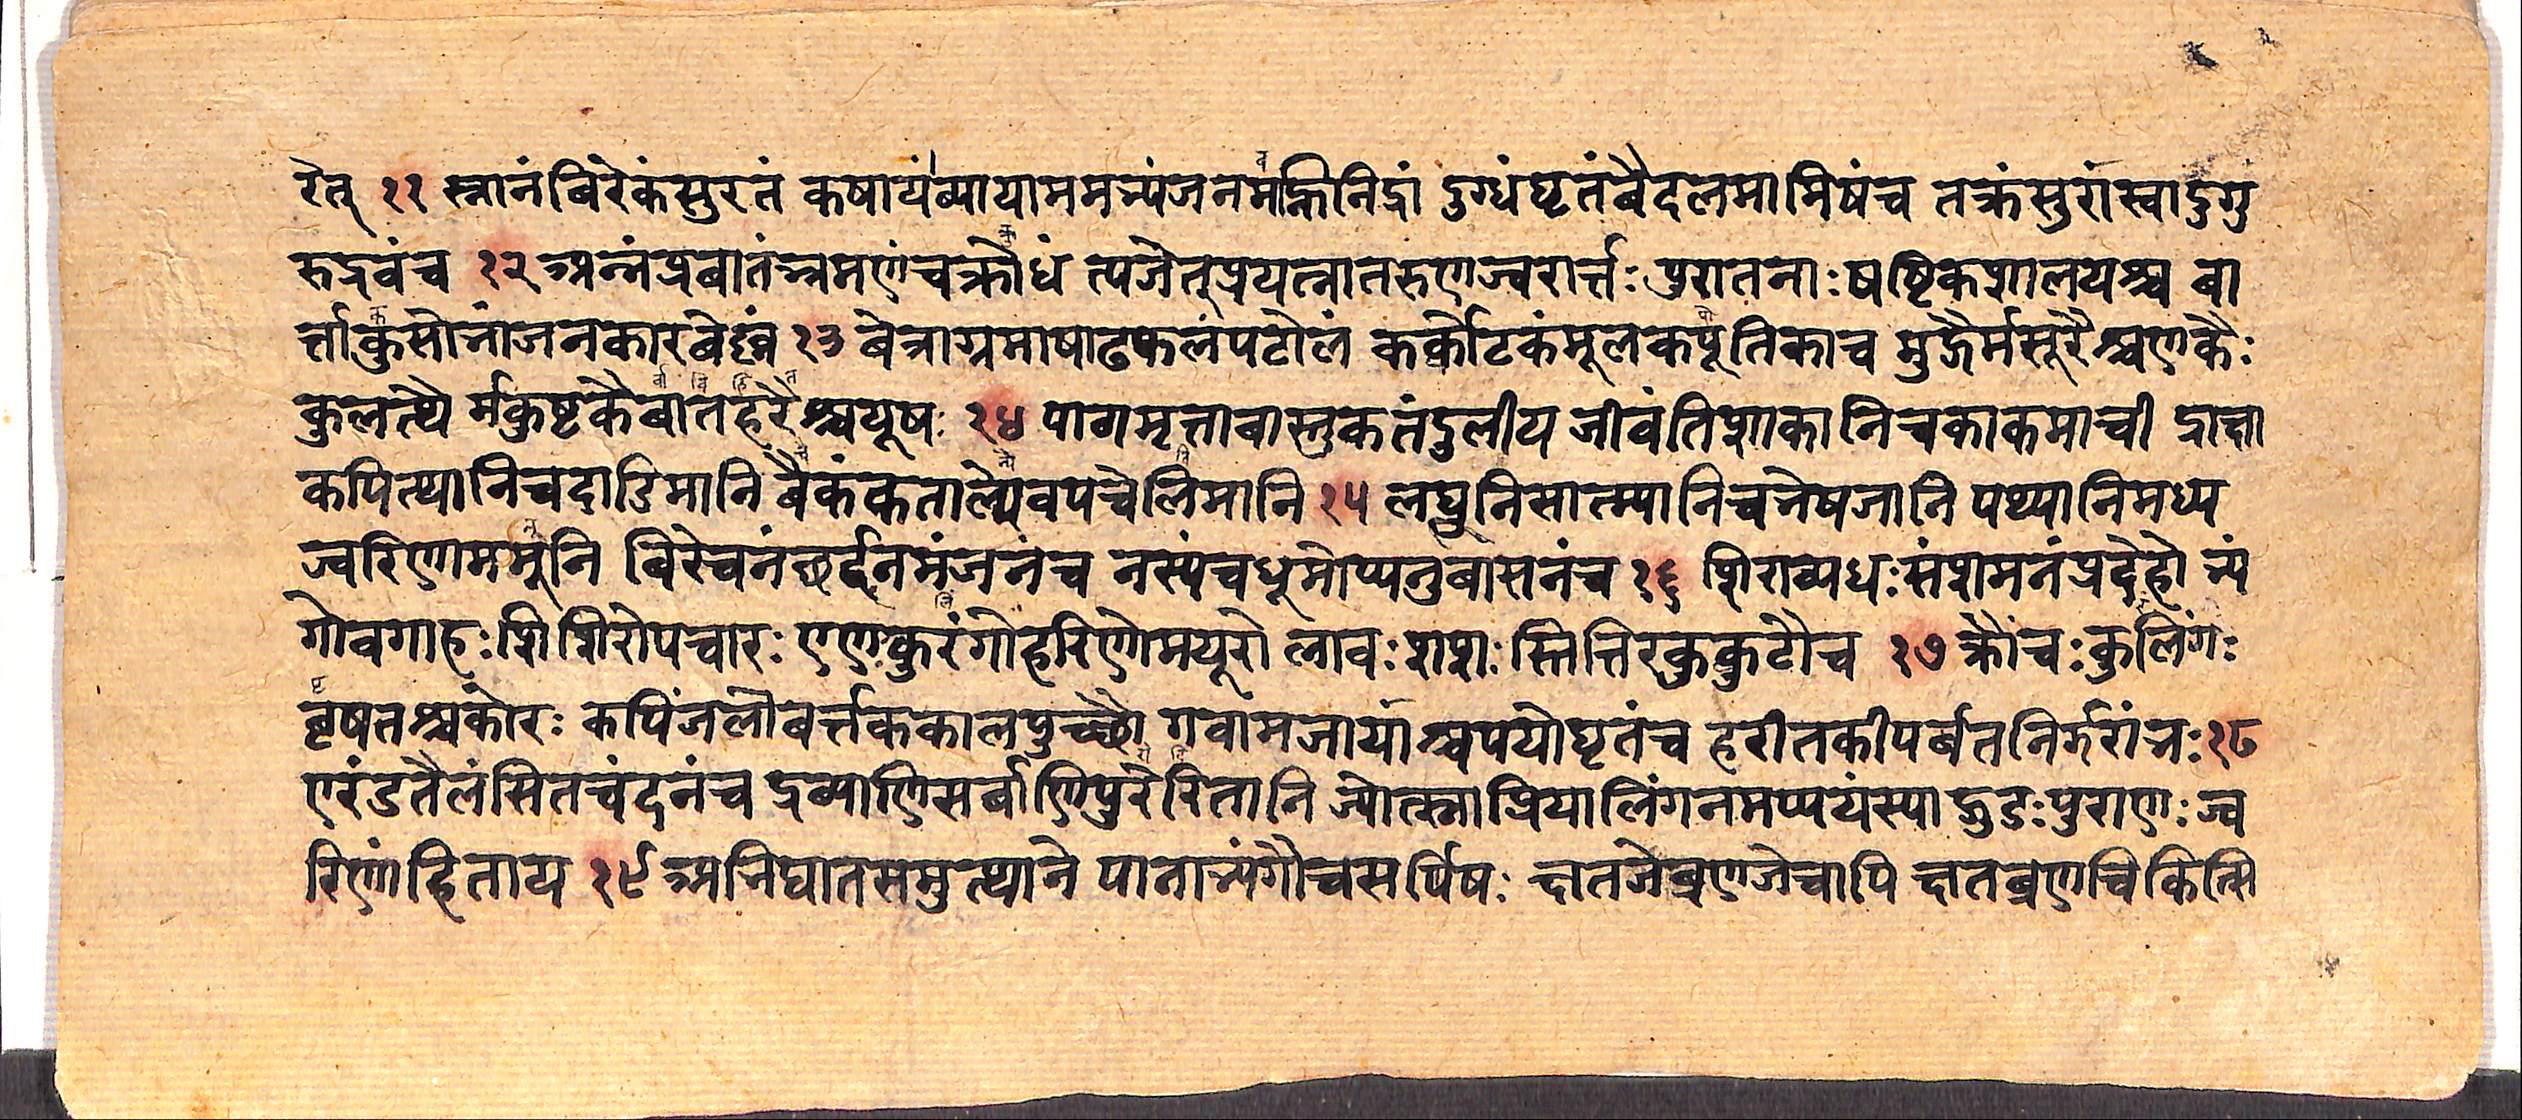 रेत् ११ स्नानंबिरेकंसुरतं कषायंव्यायाममभ्यंजनमह्निनिद्रां दुग्धंघृतंबैदलमामिषंच तक्रंसुरांस्वादुगु
रुद्रवंच १२ अन्नंप्रबातंभ्रमणंचक्रोधं त्यजेत्प्रयत्नातरुणज्वरार्त्तः पुरातनाःषष्टिकशालयश्च बा
र्त्ताकुसोभांजनकारबेल्लं १३ बेत्राग्रमाषाढफलंपटोलं कर्कोटकंमूलकपूतिकाच मुद्गैर्मसूरैश्चणकैः
कुलत्थै र्मकुष्टकैबातहरैश्चयूषः १४ पाठामृताबास्तुकतंदुलीय जीवंतिशाकानिचकाकमाची द्राक्षा
कपित्थानिचदाडिमानि बैकंकतान्येवपचेलिमानि १५ लघूनिसात्म्यानिचभेषजानि पथ्यानिमध्य
ज्वरिणाममूनि बिरेचनंछर्द्दनमंजनंच नस्यंचधूमोप्यनुबासनंच १६ शिराव्यधःसंशमनंप्रदेहो भ्यं
गोवगाहःशिशिरोपचारः एणःकुरंगोहरिणोमयूरो लावःशशःस्तित्तिरकुकुटौच १७ क्रौंचःकुलिंगः
बृषतश्चकोरः कपिंजलौबर्त्तककालपुच्छौ गवामजायाश्चपयोघृतंच हरीतकीपर्बतनिर्झरांभः१८
एरंडतैलंसितचंदनंच द्रव्याणिसर्बाणिपुरेरितानि ज्योत्स्नाप्रियालिंगनमप्ययंस्या द्गुडःपुराणःज्व
रिणांहिताय १९ अभिघातसमुत्थाने पानाभ्यंगौचसर्पिषः क्षतजेब्रणजेचापि क्षतब्रणचिकित्सि